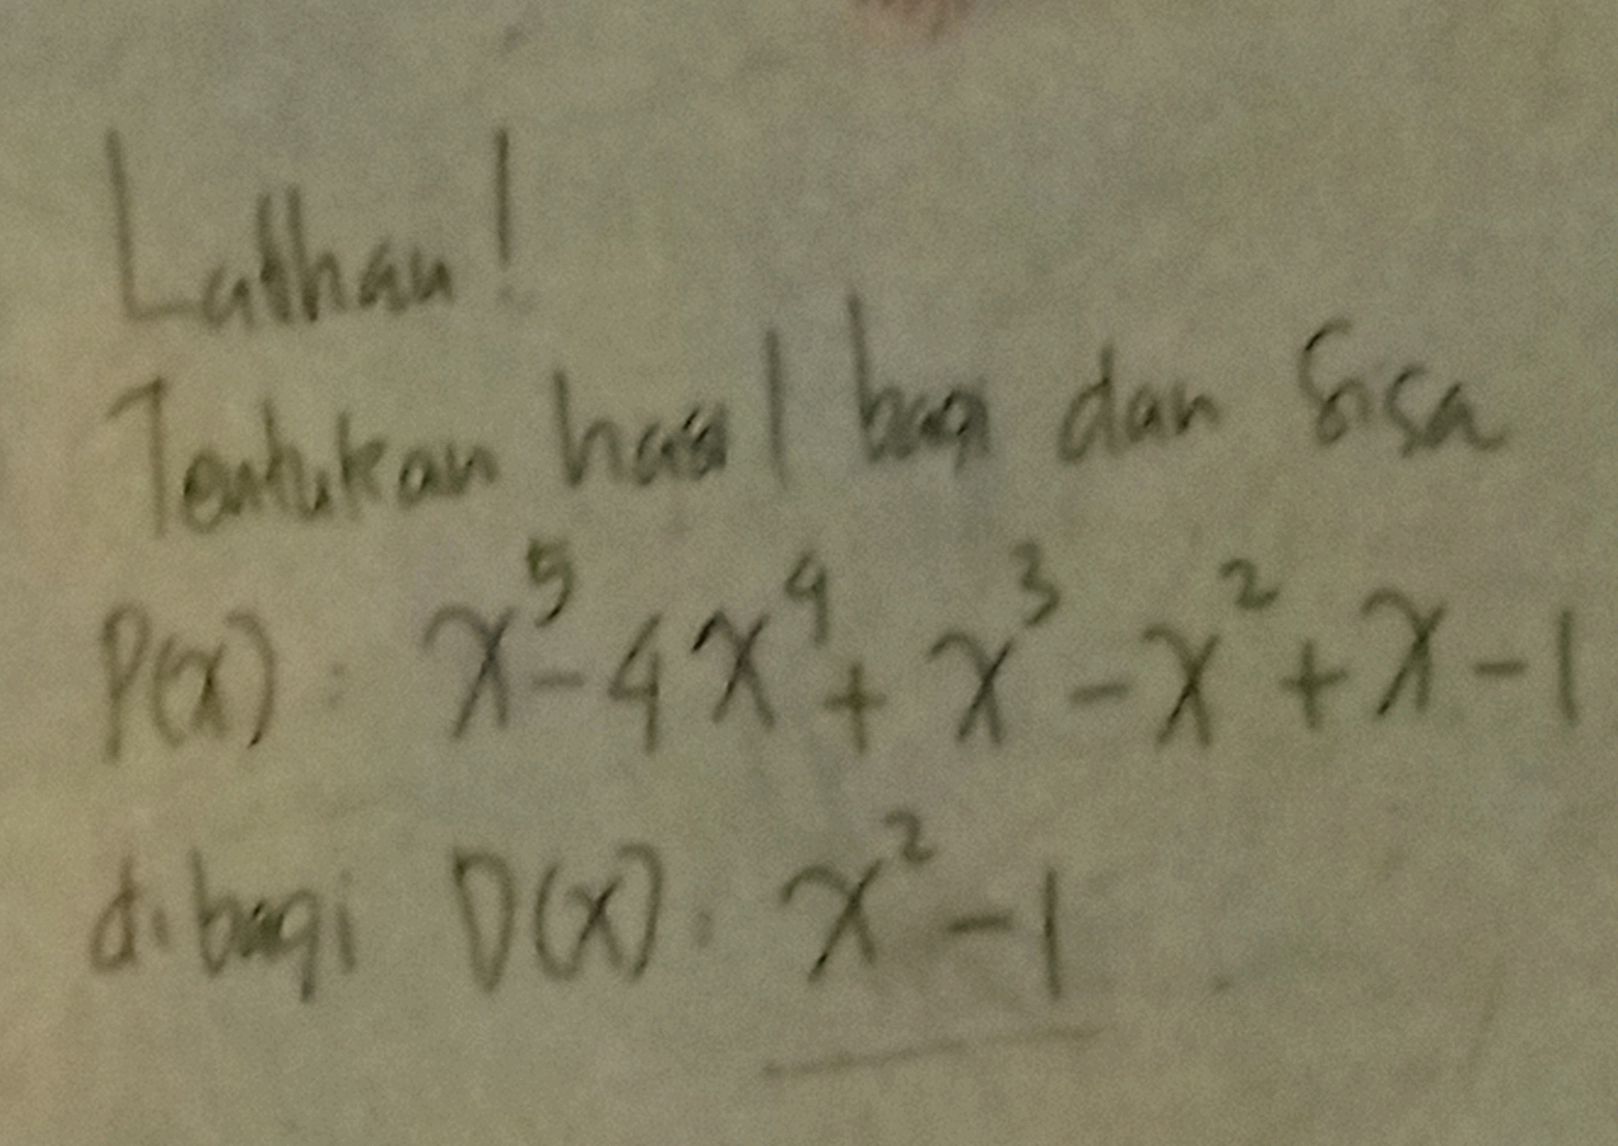 Latihan!
Tentukan hasil bagi dan sisa
P(x): x⁵-4x⁴+x³-x²+x-1
dibagi D(x): x²-1